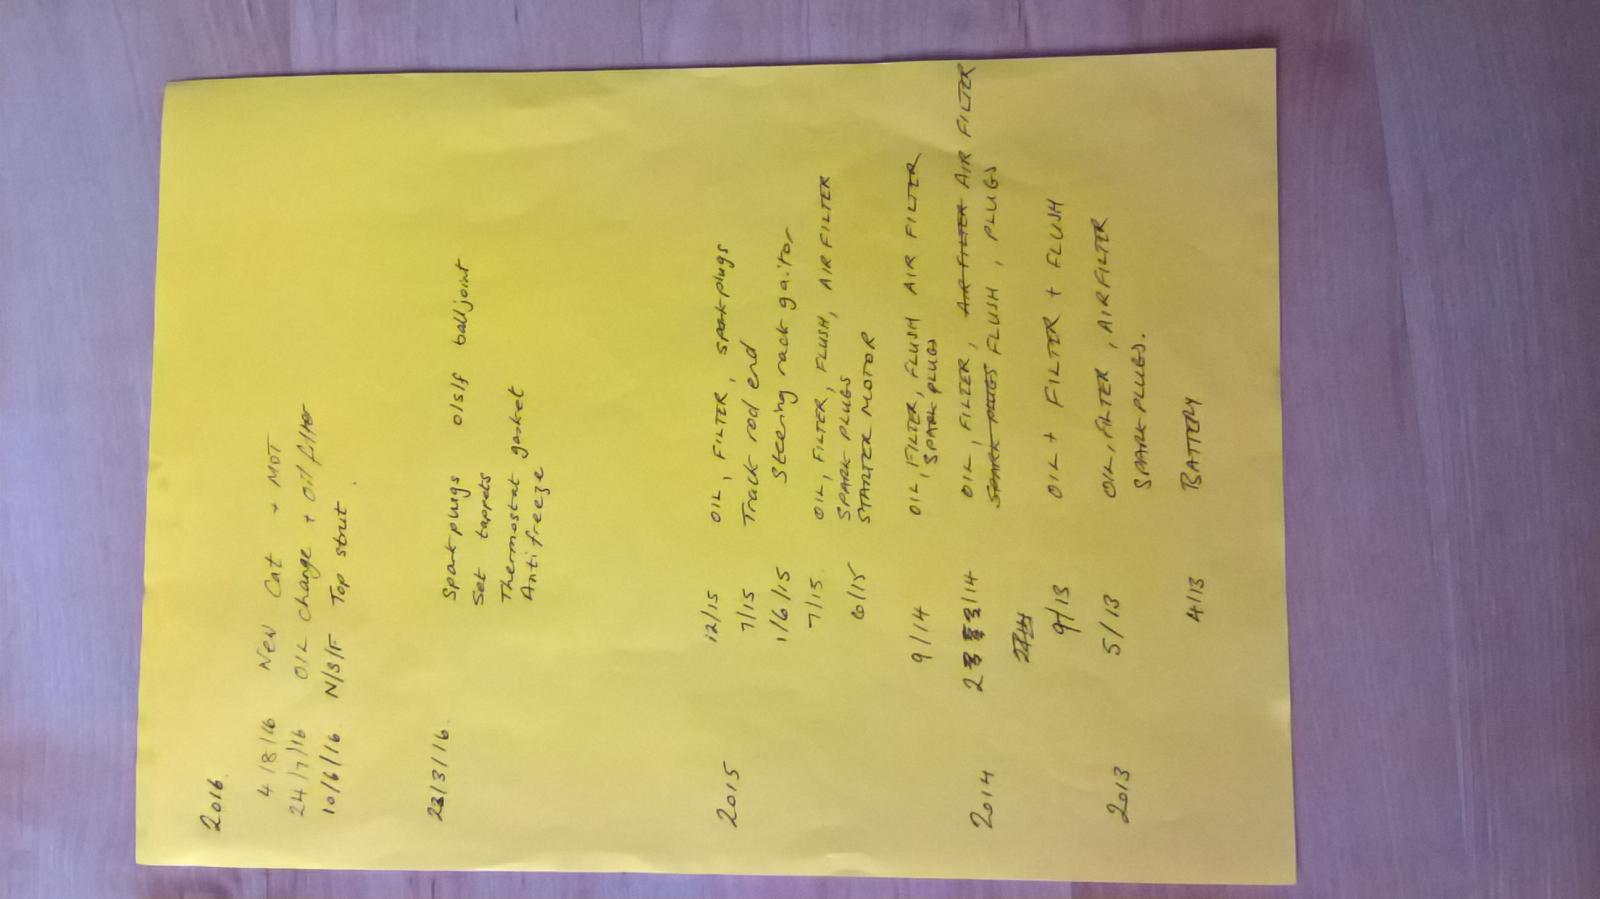 2016
4/8/16 New Cat + MOT
24/7/16 OIL Change + Oil filter
10/6/16 N/S/F Top strut
23/3/16 Spark plugs o/s/f ball joint
Set tappets
Thermostat gasket
Antifreeze
2015 12/15 OIL, FILTER, spark plugs
7/15 Track rod end
1/6/15 Steering rack gaitor
7/15 OIL, FILTER, FLUSH, AIR FILTER
SPARK PLUGS
6/15 STARTER MOTOR
9/14 OIL, FILTER, FLUSH AIR FILTER
SPARK PLUGS
2014 2/14 OIL, FILTER, AIR FILTER AIR FILTER
SPARK PLUGS FLUSH, PLUGS
9/13 OIL + FILTER + FLUSH
2013 5/13 OIL, FILTER, AIR FILTER
SPARK PLUGS.
4/13 BATTERY